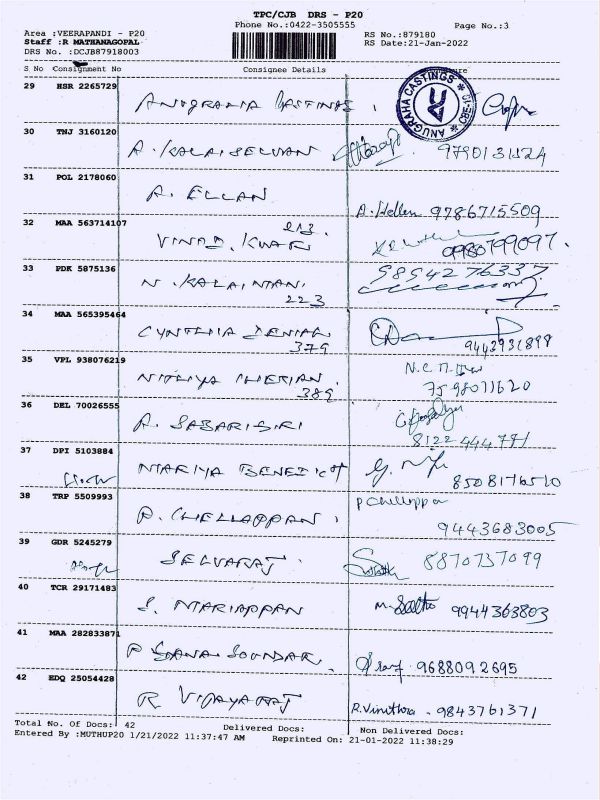 TPC/CJB DRS - P20
Phone No.:0422-3505555 Page No.:3
Area :VEERAPANDI - P20 RS No.:879180
Staff :R MATHANAGOPAL RS Date:21-Jan-2022
DRS No. :DCJB87918003
S No Consignment No Consignee Details
29 HSR 2265729 ANUGRAHA CASTINGS
ANUGRAHA CASTINGS * CBE-10 *
30 TNJ 3160120 A. KALAISELVAN
31 POL 2178060 A. ELLAN A. Hellen 9786715509
32 MAA 563714107 213
VINOD. KUMAR 09980799097.
33 PDK 5875136 N. KALAIMANI 9894276337
223
34 MAA 565395464 CYNTHIA
379 9443931898
35 VPL 938076219 NITHIYA CHERIAN.
389 7598011620
36 DEL 70026555 A. SABARISRI
8122444791
37 DPI 5103884 MARIYA BENEDICT
8508176510
38 TRP 5509993 P. CHELLAPPAN P Chellappan
9443683005
39 GDR 5245279 SELVARAJ. 8870737099
40 TCR 29171483 S. MARIAPPAN 9944363803
41 MAA 282833871 9688092695
42 EDQ 25054428 R VIJAYARAJ R. Vinithra. 9843761371
Total No. Of Docs: 42 Delivered Docs: Non Delivered Docs:
Entered By :MUTHUP20 1/21/2022 11:37:47 AM Reprinted On: 21-01-2022 11:38:29